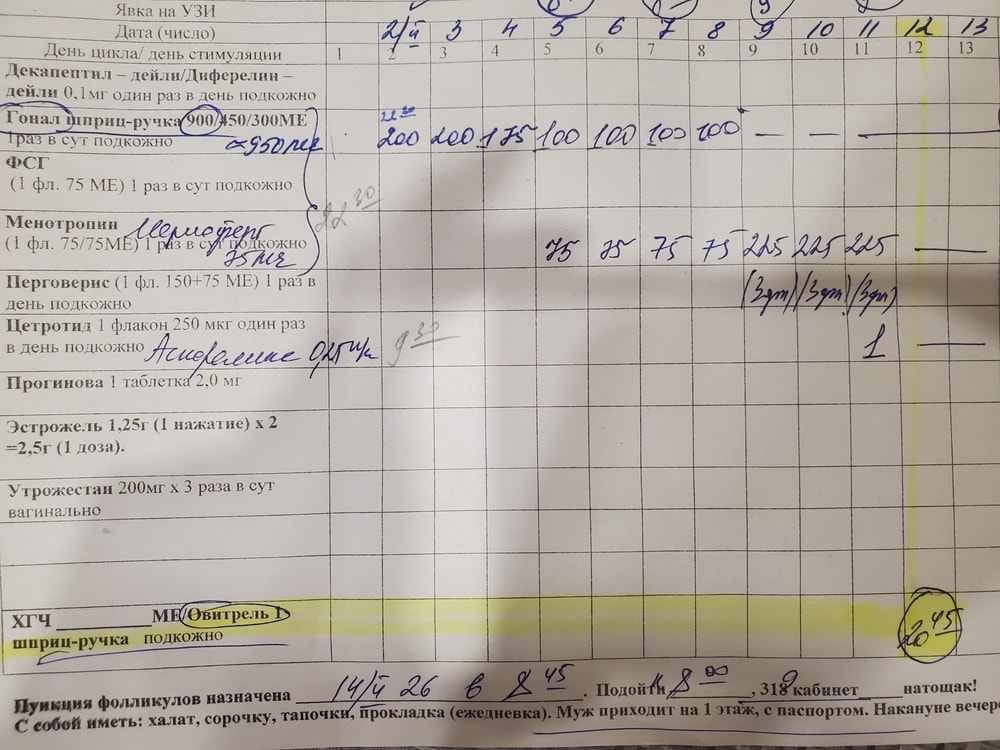 Явка на УЗИ
Дата (число) 2/ii 3 4 5 6 7 8 9 10 11 12 13
День цикла/ день стимуляции 1 2 3 4 5 6 7 8 9 10 11 12 13
Декапептил – дейли/Диферелин –
дейли 0,1мг один раз в день подкожно
Гонал шприц-ручка 900/450/300МЕ 22 30
1раз в сут подкожно ≈950МЕ 200 200 175 100 100 100 100 — — —
ФСГ
(1 фл. 75 МЕ) 1 раз в сут подкожно
22 30
Менотропин Мериоферт
(1 фл. 75/75МЕ) 1 раз в сут подкожно 75 75 75 75 225 225 225 —
75МЕ
Перговерис (1 фл. 150+75 МЕ) 1 раз в (3 фл) (3 фл) (3 фл)
день подкожно
Цетротид 1 флакон 250 мкг один раз
в день подкожно 0,25 9 30 1 —
Прогинова 1 таблетка 2,0 мг
Эстрожель 1,25г (1 нажатие) х 2
=2,5г (1 доза).
Утрожестан 200мг х 3 раза в сут
вагинально
ХГЧ ________МЕ/Овитрель 1
шприц-ручка подкожно 20 45
Пункция фолликулов назначена 14/ii 26 в 8 45 . Подойти к 8 00, 318 кабинет____натощак!
С собой иметь: халат, сорочку, тапочки, прокладка (ежедневка). Муж приходит на 1 этаж, с паспортом. Накануне вечеро